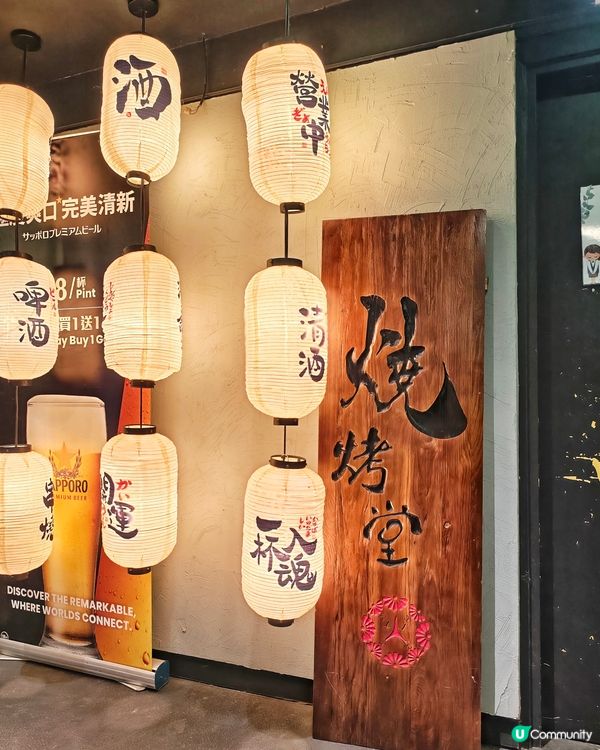 酒
営業中
完美清新
サッポロプレミアムビール
8/杯
Pint
買1送1
ay Buy 1 G
啤酒
清酒
串燒
開運
かい
一杯入魂
SAPPORO
PREMIUM BEER
DISCOVER THE REMARKABLE,
WHERE WORLDS CONNECT.
燒
烤
堂
火
U Community